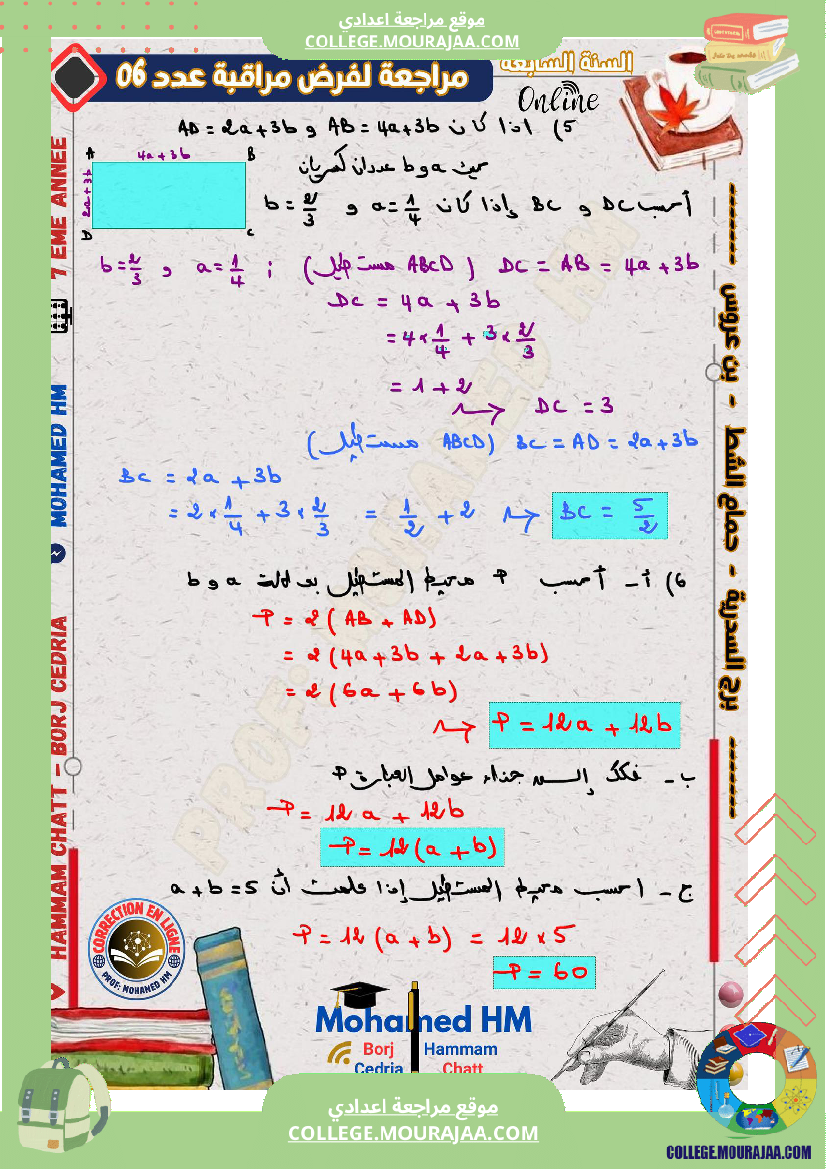 موقع مراجعة اعدادي
COLLEGE.MOURAJAA.COM
السنة السابعة
مراجعة لفرض مراقبة عدد 06
Online
5) اذا كان AB = 4a+3b و AD = 2a+3b
حيث a و b عددان كسريان
A
4a+3b
B
2a+3b
D
C
أحسب DC و BC وإذا كان a = 1/4 و b = 2/3
DC = AB = 4a+3b (ABCD مستطيل) ; a = 1/4 و b = 2/3
DC = 4a + 3b
= 4 × 1/4 + 3 × 2/3
= 1 + 2
DC = 3
BC = AD = 2a+3b (ABCD مستطيل)
BC = 2a + 3b
= 2 × 1/4 + 3 × 2/3 = 1/2 + 2
BC = 5/2
6) أ - أحسب P محيط المستطيل بدلالة a و b
P = 2(AB + AD)
= 2(4a+3b + 2a+3b)
= 2(6a + 6b)
P = 12a + 12b
ب - فكك إلى جذاء عوامل العبارة P
P = 12a + 12b
P = 12(a + b)
ج - احسب محيط المستطيل إذا علمت أن a + b = 5
P = 12(a+b) = 12 × 5
P = 60
7 EME ANNEE
MOHAMED HM
HAMMAM CHATT - BORJ CEDRIA
برج السدرية - حمام الشط - بن عروس
PROF: MOHAMED HM
CORRECTION EN LIGNE
PROF: MOHAMED HM
Mohamed HM
Borj Cedria
Hammam Chatt
موقع مراجعة اعدادي
COLLEGE.MOURAJAA.COM
COLLEGE.MOURAJAA.COM